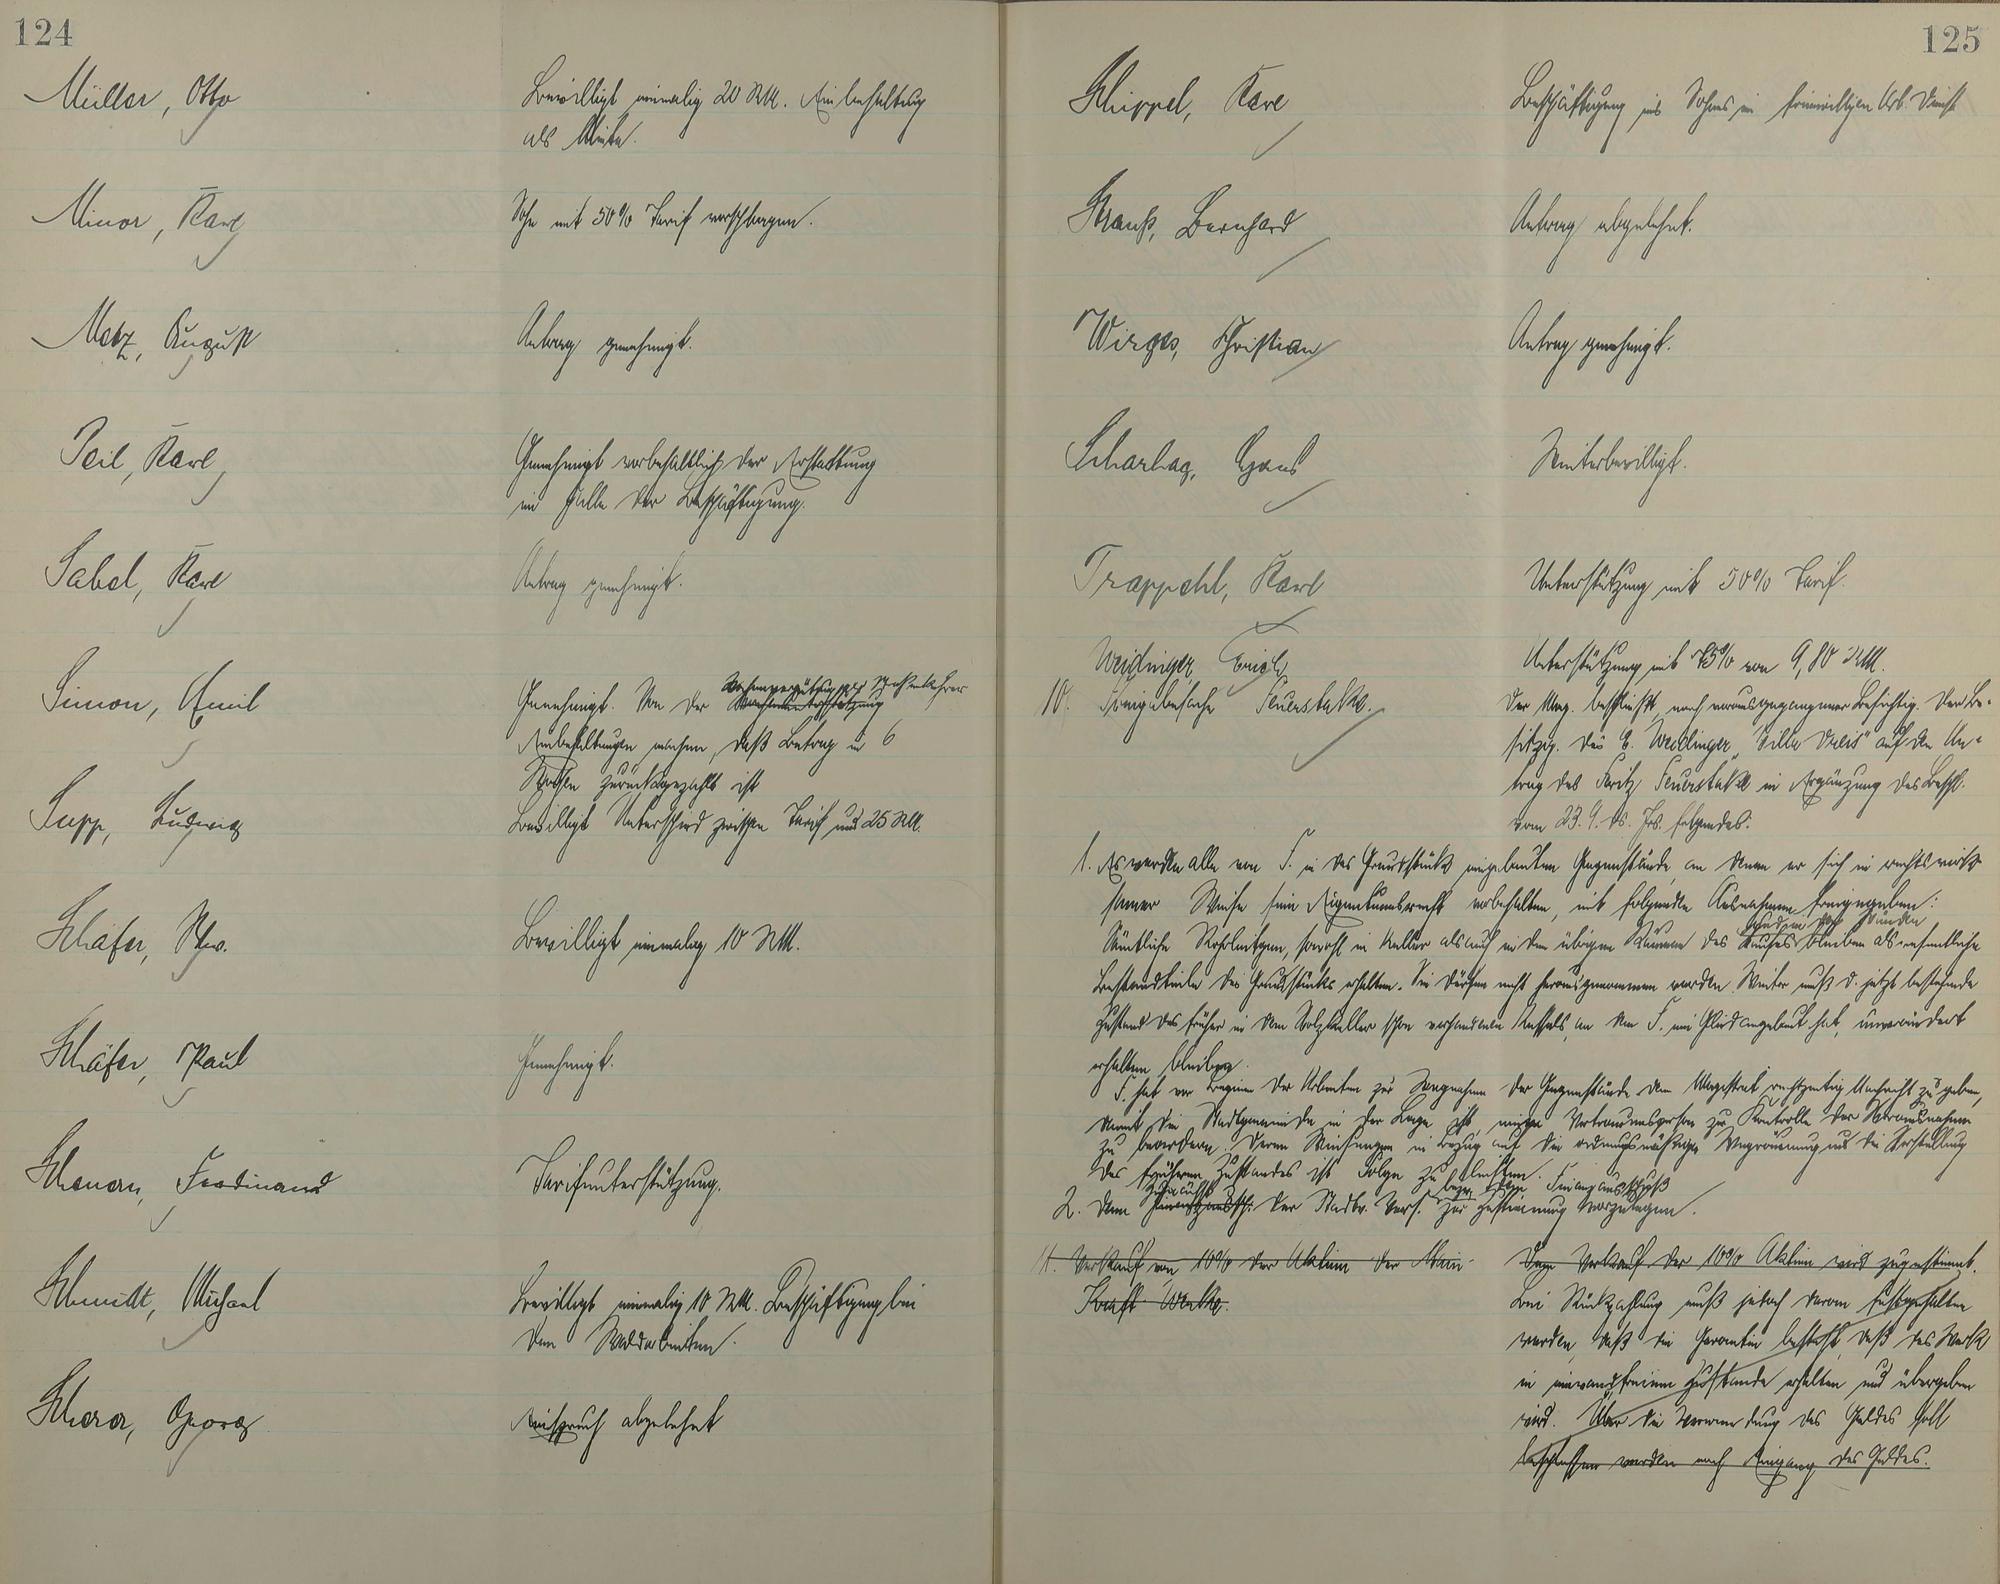 124
Müller, Otto
Bewilligt einmalig 20 RM. Einbehaltung
als Miete.
Minor, Karl
Sohn mit 50% Tarif vorschlagen.
Metz, August
Antrag genehmigt.
Peil, Karl
Genehmigt vorbehaltlich der Erstattung
im Falle der Beschäftigung.
Sabel, Karl
Antrag genehmigt.
Simon, Emil
Genehmigt. Von der
Einbehaltungen machen, daß Betrag in 6
zurückgezahlt ist
Supp, Ludwig
Bewilligt Unterschied zwischen Tarif und 25 RM.
Schäfer, Ww.
Bewilligt einmalig 10 RM.
Schäfer, Paul
Genehmigt.
Scheuern, Ferdinand
Tarifunterstützung.
Schmidt, Michael
Bewilligt einmalig 10 RM. Beschäftigung bei
den Waldarbeiten.
Scherer, Georg
Einspruch abgelehnt
125
Schippel, Karl
Beschäftigung des Sohnes im freiwilligen Arb. Dienst
Strauß, Bernhard
Antrag abgelehnt.
Wirges, Christian
Antrag genehmigt.
Scharhag, Hans
Weiterbewilligt.
Trappehl, Karl
Unterstützung mit 50% Tarif.
Weidinger, Erich
Unterstützung mit 75% von 9,80 RM.
10. Freigabesache Feuerstake.
Der Mag. beschließt nach vorausgegangener Besichtig. der Be-
sitzg. des E. Weidinger "Villa Dreis" auf den An-
trag des Fritz Feuerstake in Ergänzung des Beschl.
vom 23.9. ds. Jrs. folgendes:
1. Es werden alle von F. in das Grundstück eingebauten Gegenstände, an denen er sich in rechtswirk-
samer Weise sein Eigentumsrecht vorbehalten, mit folgenden Ausnahmen freigegeben:
Sämtliche Rohrleitgen, sowohl im Keller als auch in den übrigen Räumen des Hauses bleiben als wesentliche
Bestandteile des Grundstücks erhalten. Sie dürfen nicht herausgenommen werden. Weiter muß d. jetzt bestehende
Zustand des früher in dem Holzkeller schon vorhandenen Kessels, an den F. ein Glied angebaut hat, unverändert
erhalten bleiben.
F. hat vor Beginn der Arbeiten zur Wegnahme der Gegenstände dem Magistrat rechtzeitig Nachricht zu geben,
damit die Stadtgemeinde in der Lage ist, einen Vertrauensperson zur Kontrolle der Herausnahme
zu beordern. Deren Weisungen in Bezug auf die ordnungsmäßige Wegräumung und die Herstellung
des früheren Zustandes ist Folge zu leisten.
2. Dem Finanzaussch. der Stadtv. Vers. bezw. dem Finanzausschuß zur Zustimmung vorzulegen.
11. Verkauf von 10% der Aktien der Main-
Kraft-Werke.
Dem Verkauf der 10% Aktien wird zugestimmt.
Bei Rückzahlung muß jedoch daran festgehalten
werden, daß die Garantie besteht, daß das Werk
in einwandfreiem Zustande erhalten und übergeben
wird. Über die Verwendung des Geldes soll
beschlossen werden nach Eingang des Geldes.